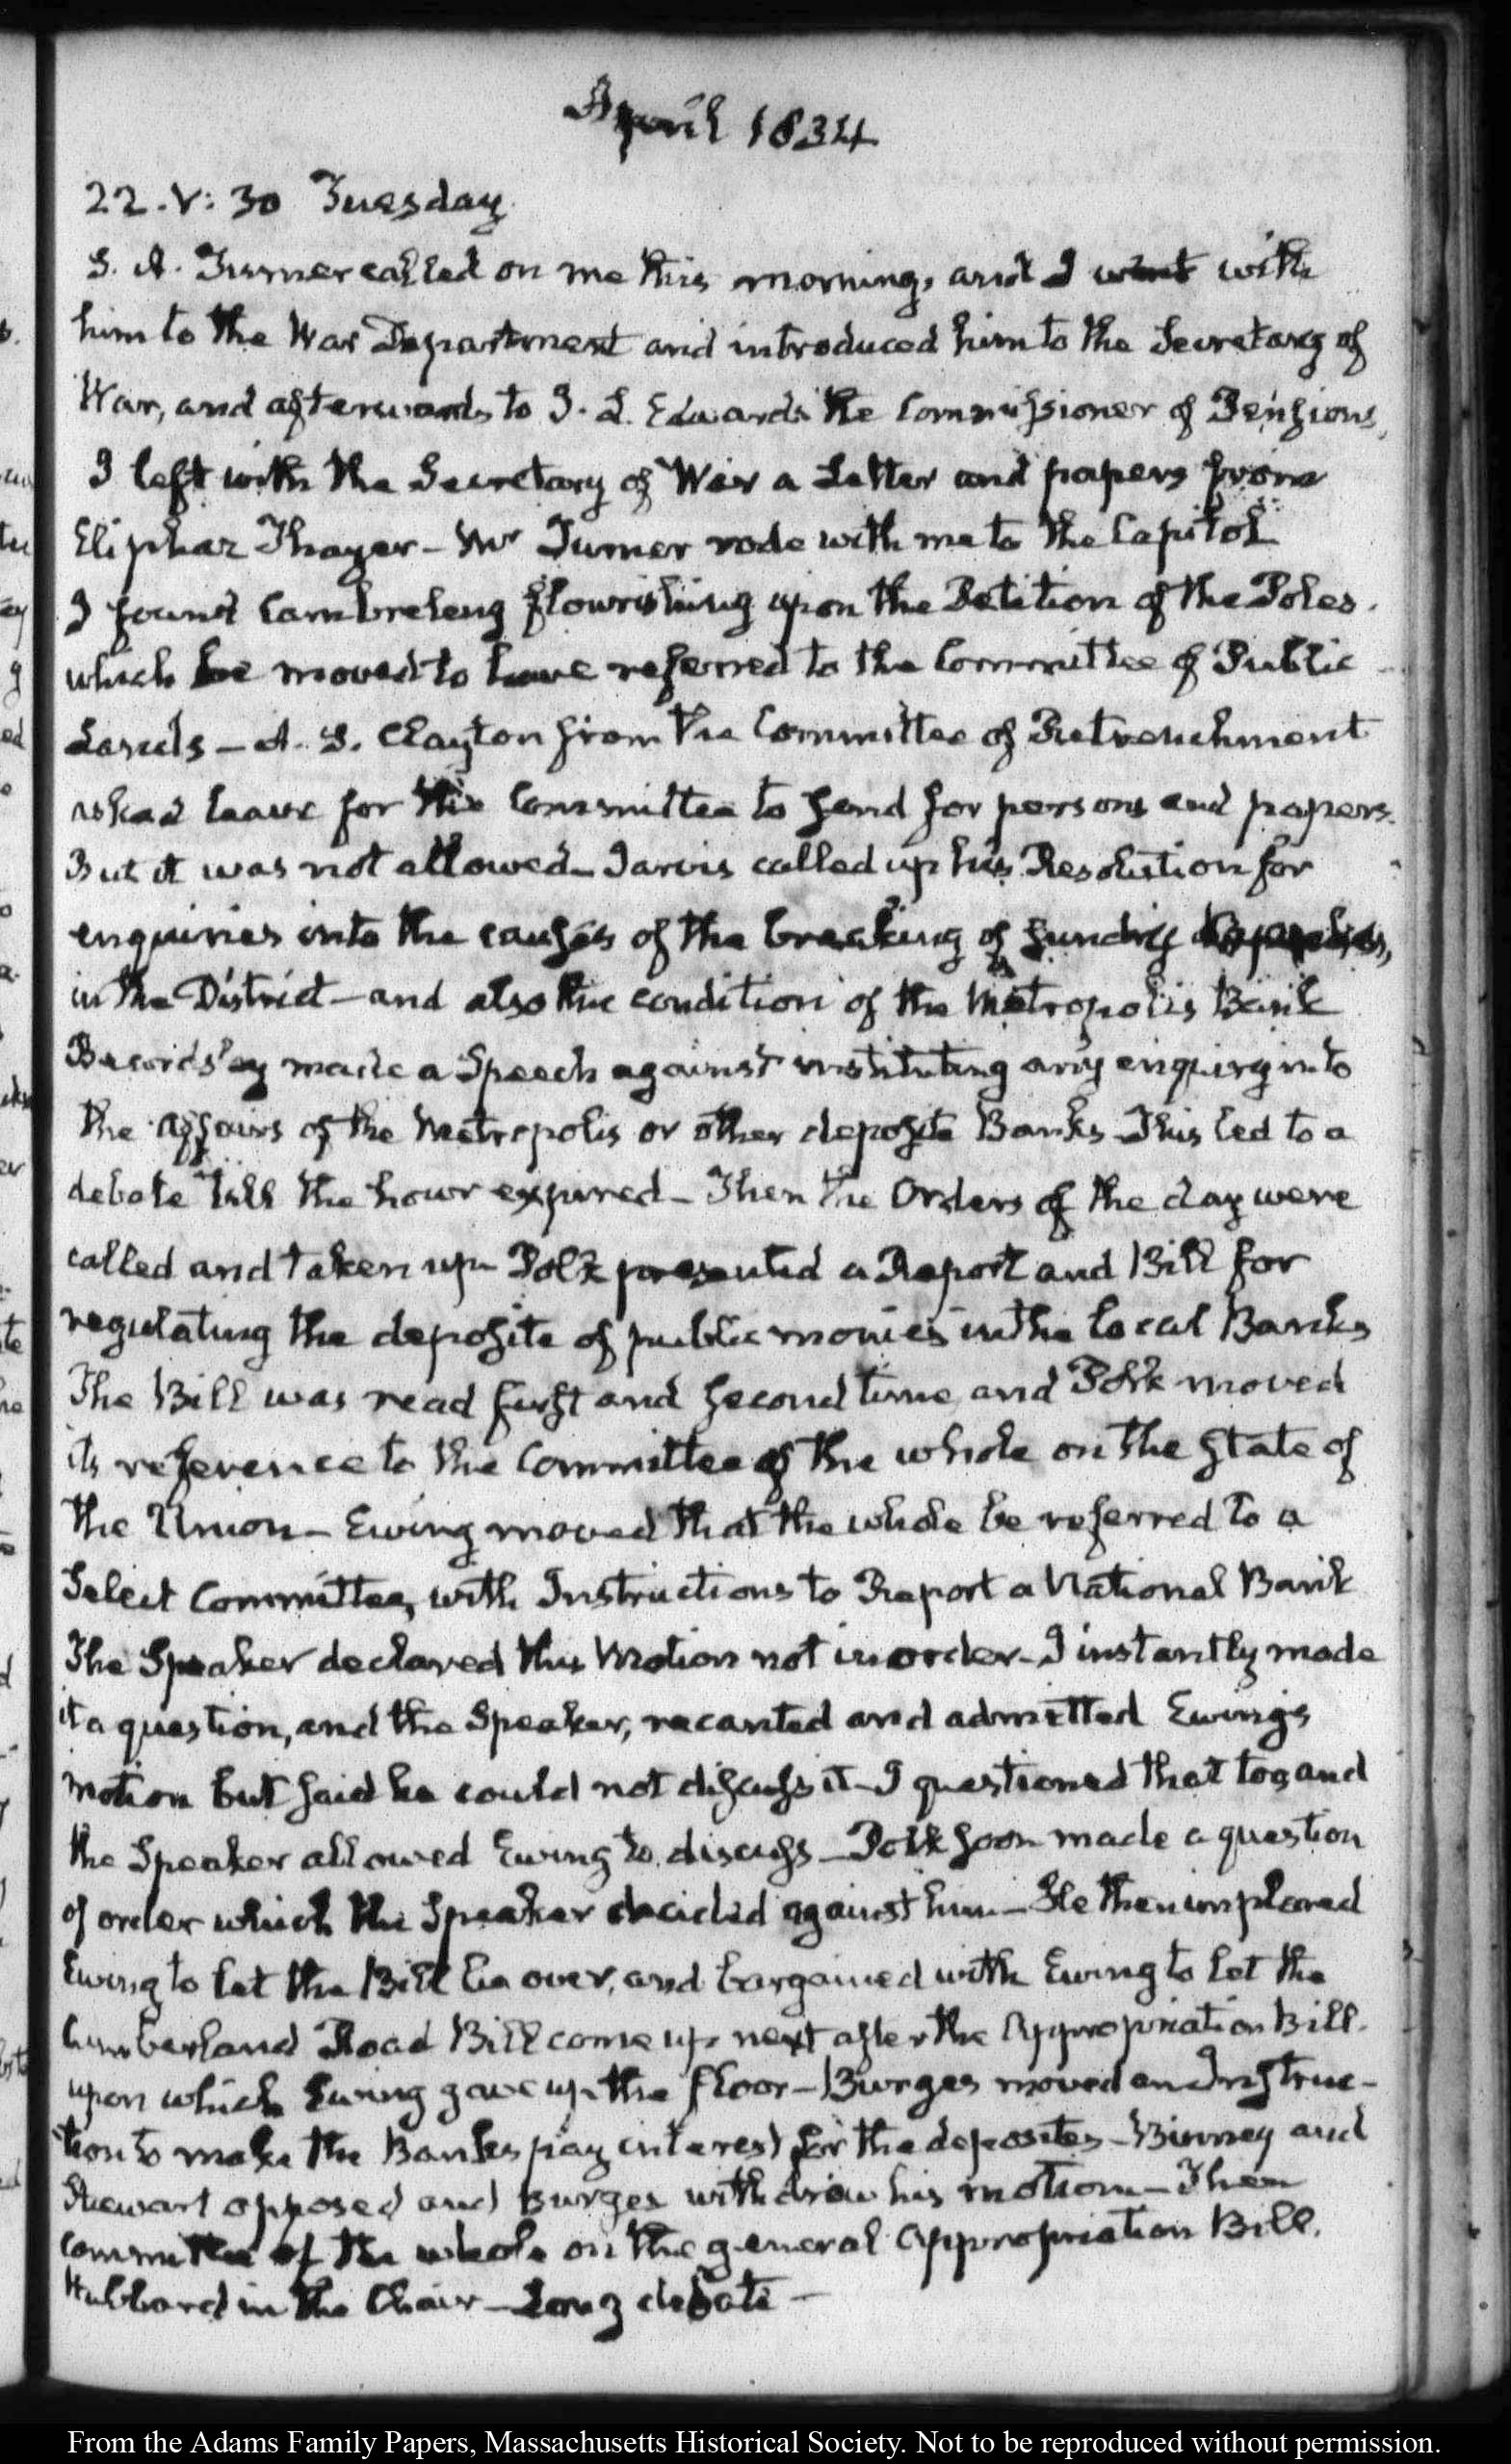 April 1834
22. V: 30 Tuesday.
S. A. Turner called on me this morning, and I went with
him to the War Department and introduced him to the Secretary of
War, and afterwards to J. L. Edwards the Commissioner of Pensions,
I left with the Secretary of War a Letter and papers from
Eliphaz Thayer – Mr Turner rode with me to the Capitol
I found Cambreleng flourishing upon the Petition of the Poles.
which he moved to have referred to the Committee of Public
Lands – A. S. Clayton from the Committee of Retrenchment
asked leave for the Committee to send for persons and papers.
But it was not allowed – Jarvis called up his Resolution for
enquiries into the causes of the breaking of sundry
in the District – and also the condition of the Metropolis Bank
Beardsley made a Speech against instituting any enquiry into
the affairs of the Metropolis or other deposite Banks – This led to a
debate till the hour expired – Then the Orders of the day were
called and taken up – Polk presented a Report and Bill for
regulating the deposite of public monies in the local Banks
The Bill was read first and second time and Polk moved
its reference to the Committee of the whole on the state of
the Union – Ewing moved that the whole be referred to a
Select Committee, with Instructions to Report a National Bank
The Speaker declared this Motion not in order – I instantly made
it a question, and the Speaker, recanted and admitted Ewing's
motion but said he could not discuss it – I questioned that too and
the Speaker allowed Ewing to discuss – Polk soon made a question
of order which the Speaker decided against him – He then implored
Ewing to let the Bill lie over, and bargained with Ewing to let the
Cumberland Road Bill come up next after the Appropriation Bill.
upon which Ewing gave up the floor – Burges moved an Instruc-
tion to make the Banks pay interest for the deposites – Binney and
Stewart opposed and Burges withdrew his motion – Then
committee of the whole on the general Appropriation Bill.
Hubbard in the Chair – Long debate –
From the Adams Family Papers, Massachusetts Historical Society. Not to be reproduced without permission.